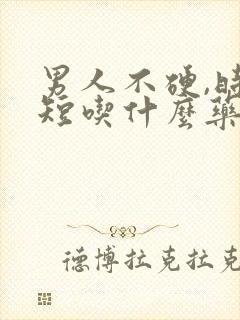 男人不硬,時
短喫什麽藥
德博拉克拉克